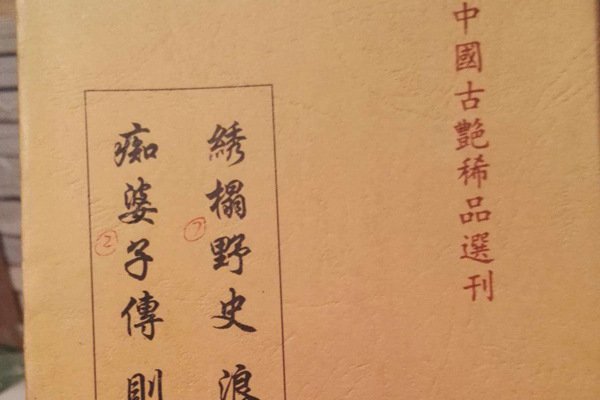 中國古艷稀品選刊
綉榻野史 浪
痴婆子傳 則